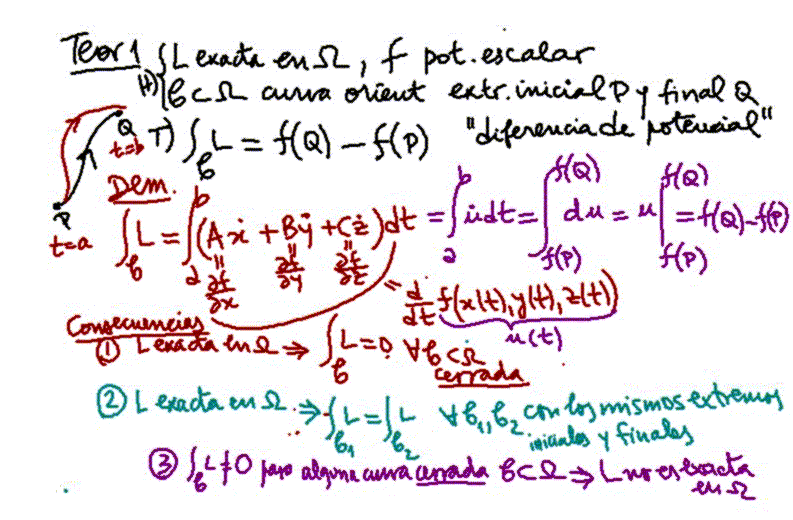 Teor 1 (H) { L exacta en Ω, f pot. escalar
ℓ ⊂ Ω curva orient extr. inicial P y final Q
Q t=b T) ∫_ℓ L = f(Q) − f(P) "diferencia de potencial"
P t=a
Dem.
∫_ℓ L = ∫_a^b (Aẋ + Bẏ + Cż)dt = ∫_a^b u̇ dt = ∫_{f(P)}^{f(Q)} du = u|_{f(P)}^{f(Q)} = f(Q)−f(P)
∂f/∂x ∂f/∂y ∂f/∂z = d/dt f(x(t),y(t),z(t))
u(t)
Consecuencias
① L exacta en Ω ⇒ ∫_ℓ L = 0 ∀ℓ ⊂ Ω
cerrada
② L exacta en Ω ⇒ ∫_{ℓ1} L = ∫_{ℓ2} L ∀ℓ1, ℓ2 con los mismos extremos
iniciales y finales
③ ∫_ℓ L ≠ 0 para alguna curva cerrada ℓ ⊂ Ω ⇒ L no es exacta
en Ω